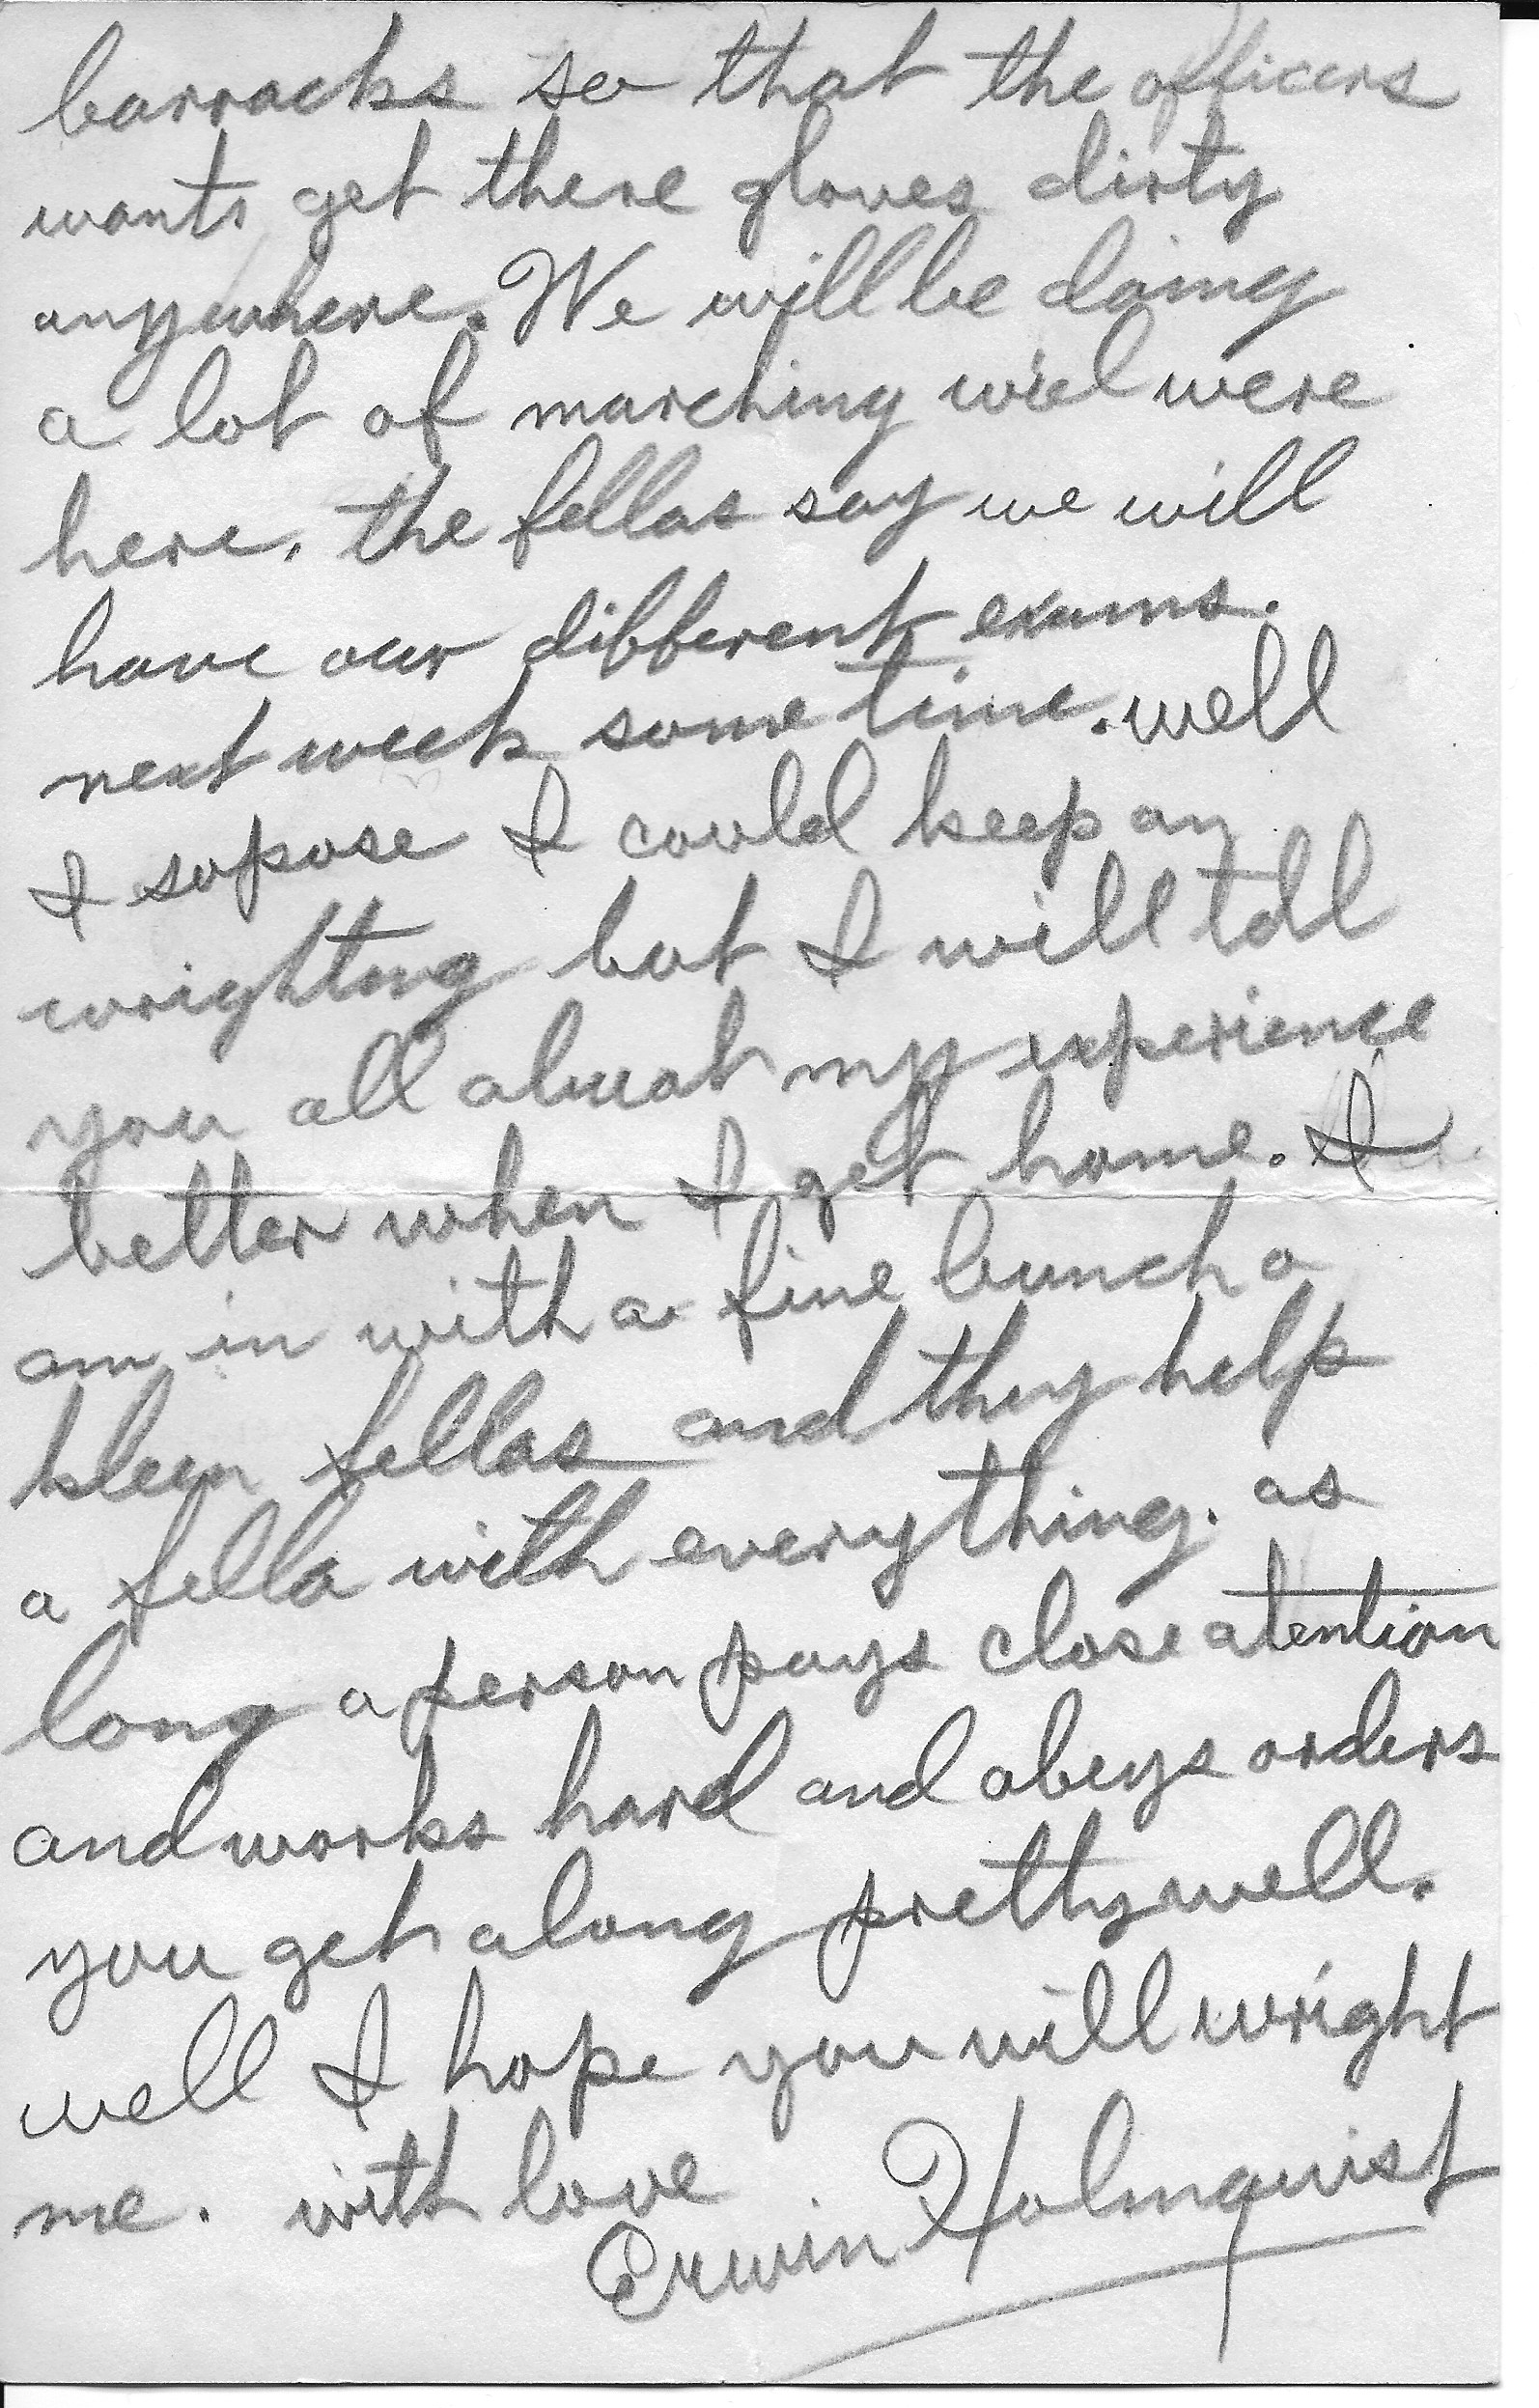 barracks so that the officers
wants get there gloves dirty
anywhere. We will be doing
a lot of marching wiel were
here. the fellas say we will
have our different exams.
next week some time. well
I sopose I could keep on
wrighting but I will tell
you all about my experience
better when I get home. I
am in with a fine bunch a
kleen fellas and they help
a fella with everything. as
long a person pays close atention
and works hard and obeys orders
you get along pretty well.
well I hope you will wright
me. with love
Erwin Holmquist